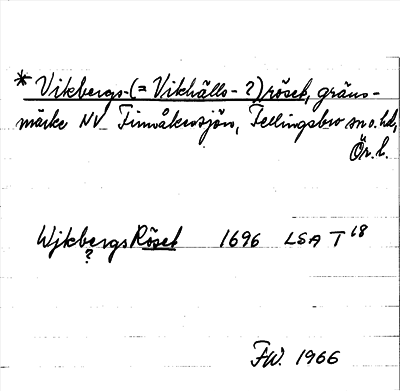 * Vikbergs-(= Vikhälls-?)röset, gräns-
märke NV Finnåkersjön, Fellingsbro sn o. hd,
Ör. l.
Wjkbergs Röset 1696 LSA T 68
?
FW. 1966